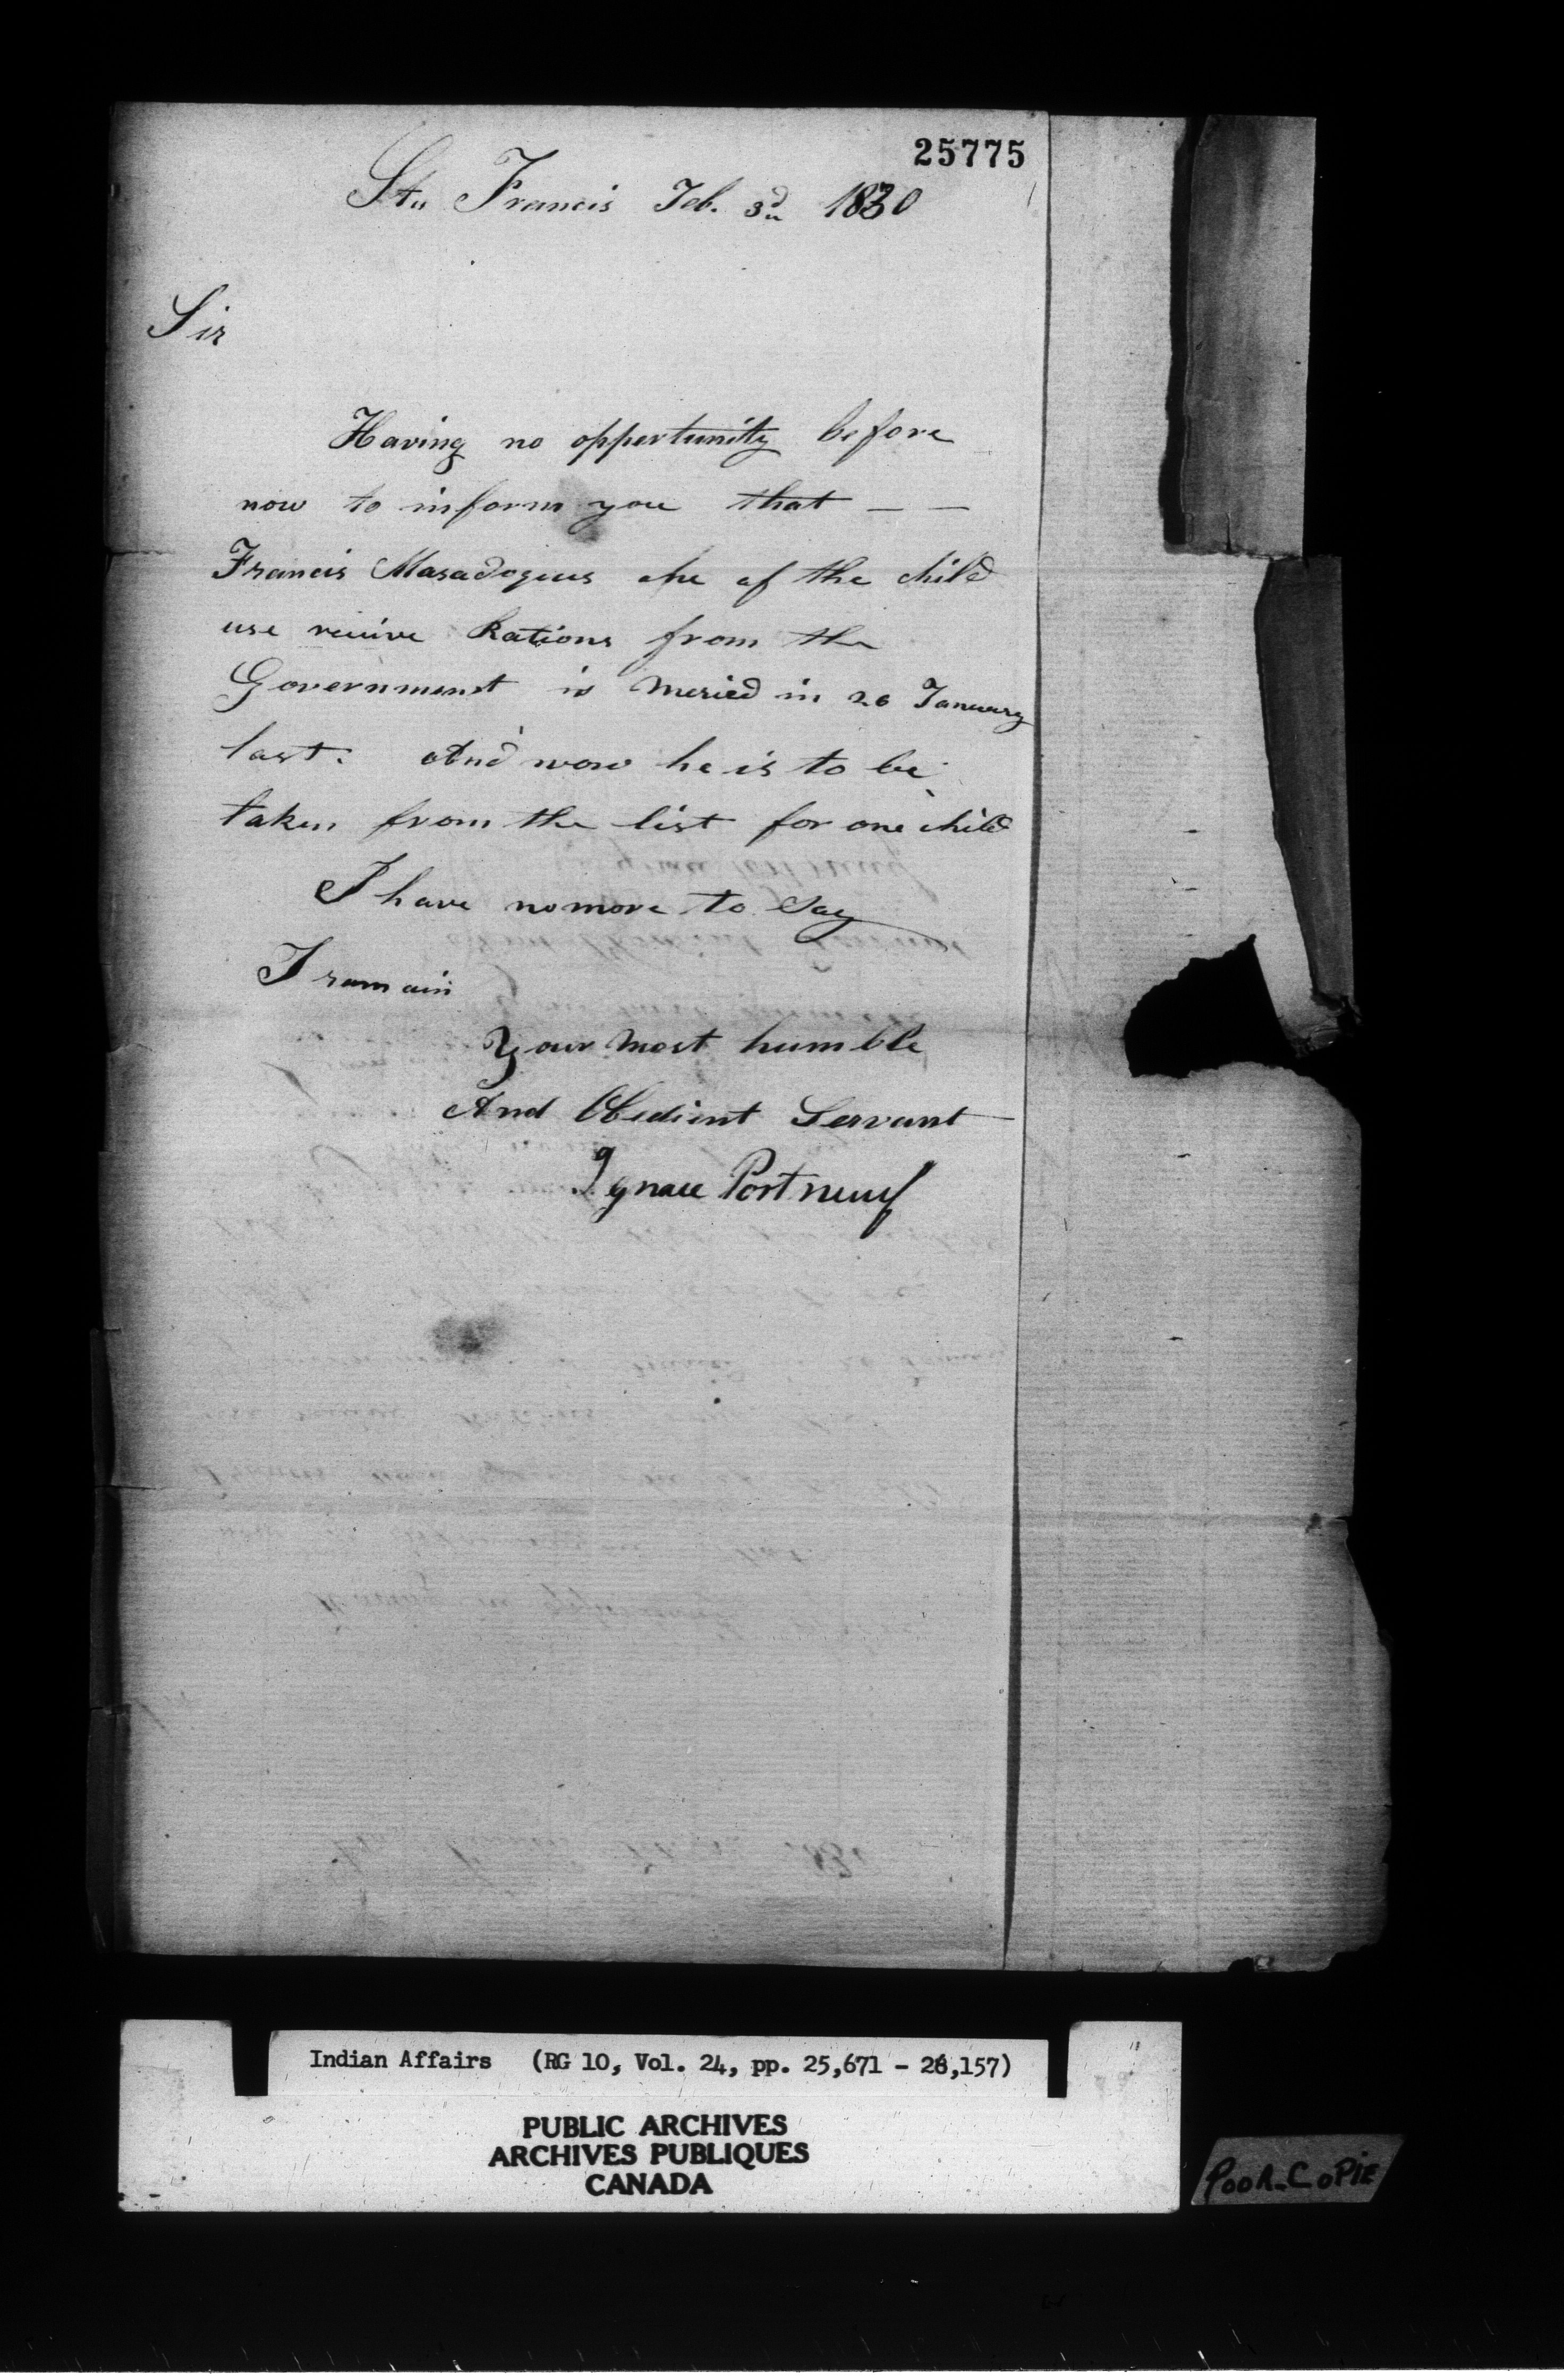 25775
St,, Francis Feb. 3d,, 1830
Sir
Having no oppertunity before
now to inform you that — —
Francis Masadoques one of the child
use receive Rations from the
Government is Meried in 26 January
last. And now he is to be
taken from the list for one child
I have no more to say
I remain
Your most humble
And Obedient Servant
Ignace Portneuf
Indian Affairs (RG 10, Vol. 24, pp. 25,671 - 26,157)
PUBLIC ARCHIVES
ARCHIVES PUBLIQUES
CANADA
POOR-COPIE